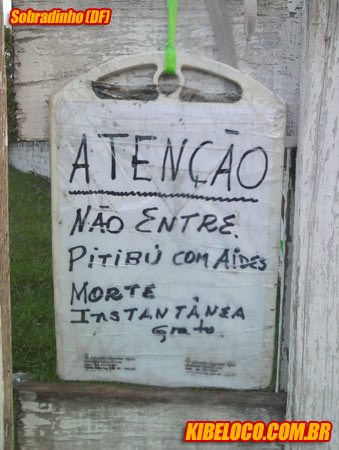 Sobradinho (DF)
ATENÇÃO
NÃO ENTRE.
PITIBÚ COM AIDES
MORTE
INSTANTÂNEA
Grato.
KIBELOCO.COM.BR